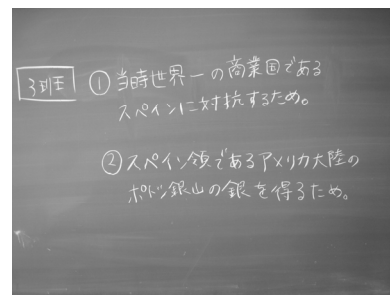 3班
① 当時世界一の商業国である
スペインに対抗するため。
② スペイン領であるアメリカ大陸の
ポトシ銀山の銀を得るため。